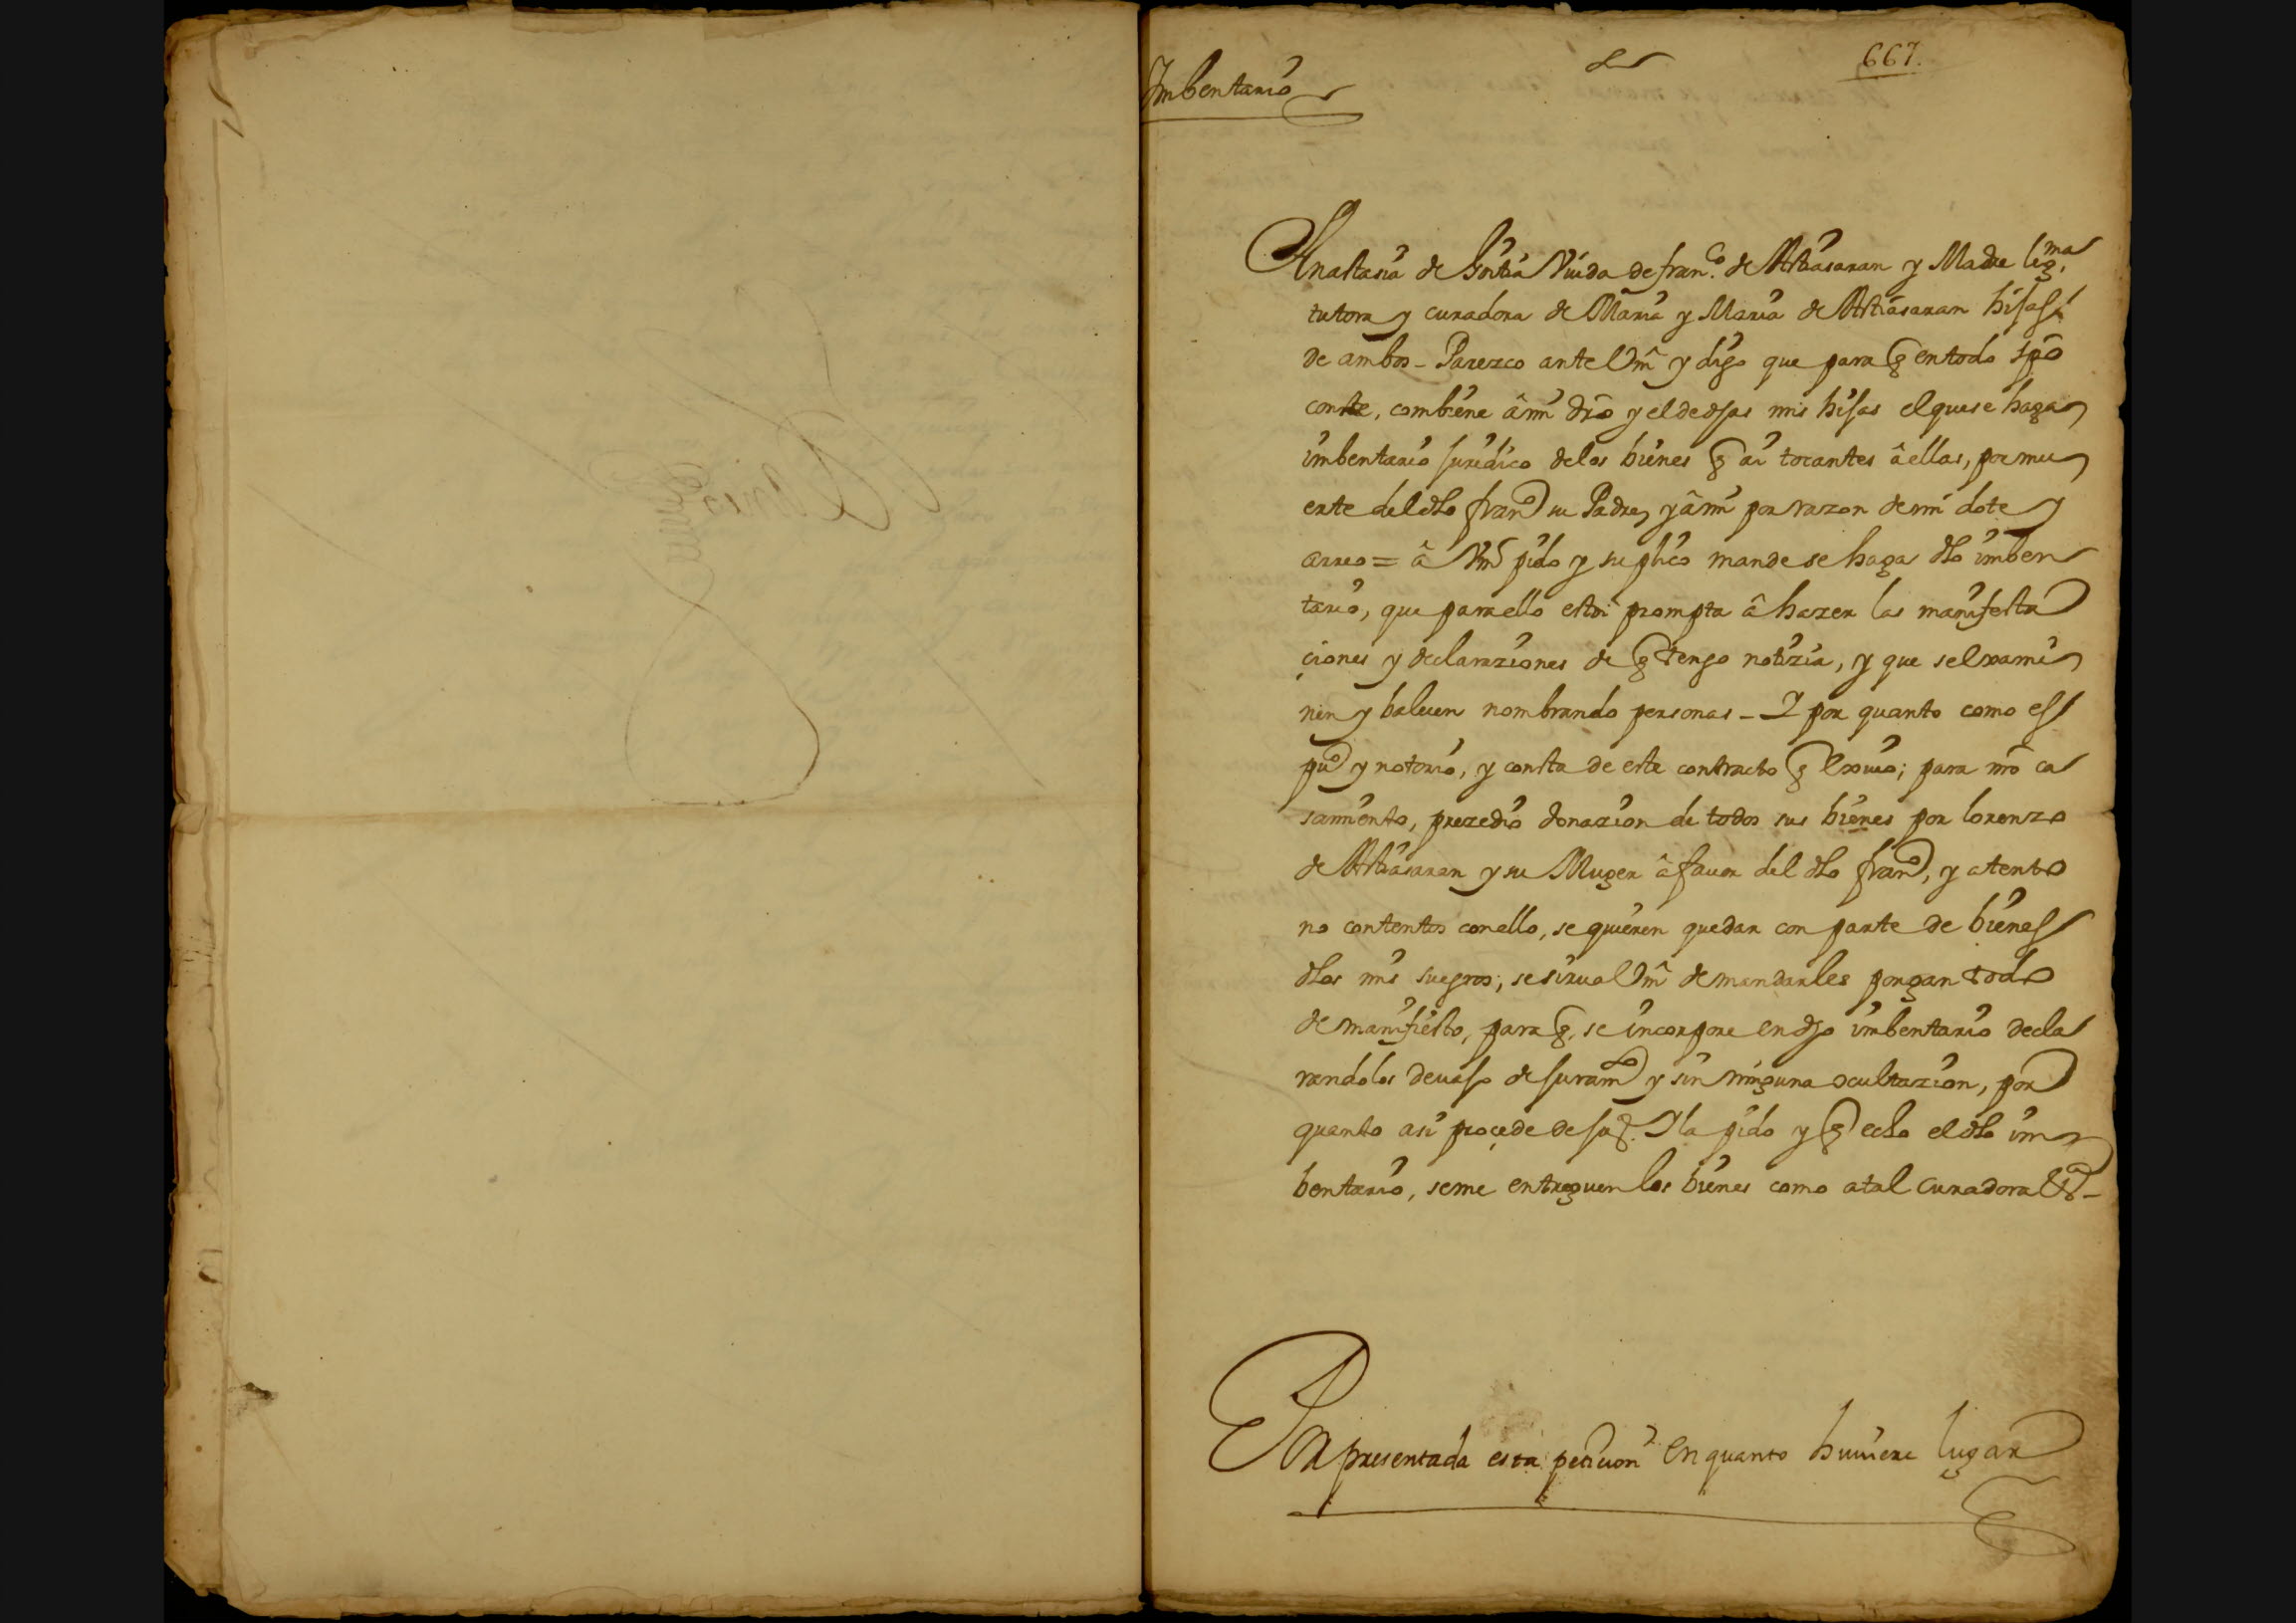 667.
Imbentario
Anastasia de Viuda de fran.co de Artiasaran y Madre leg.ma
tutora y curadora de Maria y Maria de Artiasaran hijas
de ambos - Parezco ante Vm y digo que para q en todo tpo
conste, combiene â mi dro y el de dhas mis hijas el que se haga
imbentario juridico de los bienes q ai tocantes â ellas, por mu
erte del dho fran.co su Padre, y â mi por razon de mi dote y
arreo = â Vm pido y suplico mande se haga dho imben
tario, que para ello estoi prompta â hazer las manifesta
çiones y declaraziones de q tengo notizia, y que se exami
nen y baluen nombrando personas - Y por quanto como es
pu.co y notorio, y consta de este contracto q exsivo; para nro ca
samiento, prezedio donazion de todos sus bienes por lorenzo
de Artiasaran y su Muger â favor del dho fran.co, y atento
no contentos con ello, se quieren quedar con parte de bienes
dhos mis suegros; se sirva Vm de mandarles pongan todo
de manifiesto, para q. se incorpore en dho imbentario decla
randolos devajo de juram.to y sin ninguna ocultazion, por
quanto asi proçede de jus.a Y la pido y q echo el dho im
bentario, se me entreguen los bienes como a tal curadora &a -
Por presentada esta petiçion en quanto huviere lugar